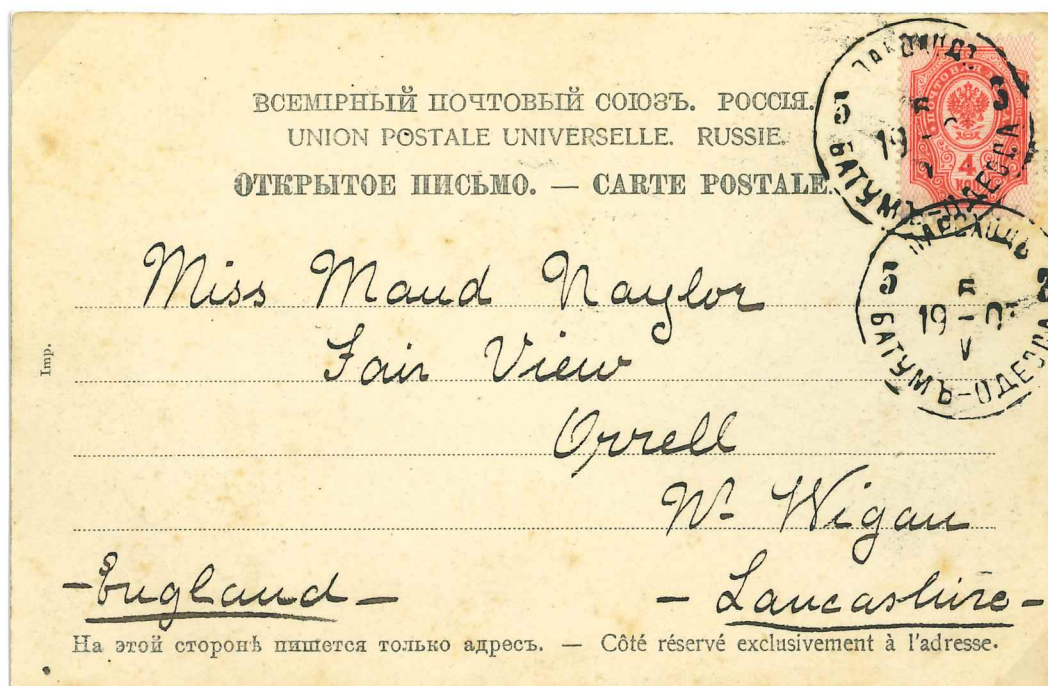 ВСЕМІРНЫЙ ПОЧТОВЫЙ СОЮЗЪ. РОССІЯ.
UNION POSTALE UNIVERSELLE. RUSSIE.
ОТКРЫТОЕ ПИСЬМО. — CARTE POSTALE.
5 5
19
БАТУМЪ-ОДЕССА
4
ПАРОХОДЪ
5
19 - 03
V
БАТУМЪ-ОДЕССА
Miss Maud Naylor
Fair View
Orrell
Nr Wigan
- England -
- Lancashire -
Imp.
На этой сторонѣ пишется только адресъ. — Côté réservé exclusivement à l'adresse.